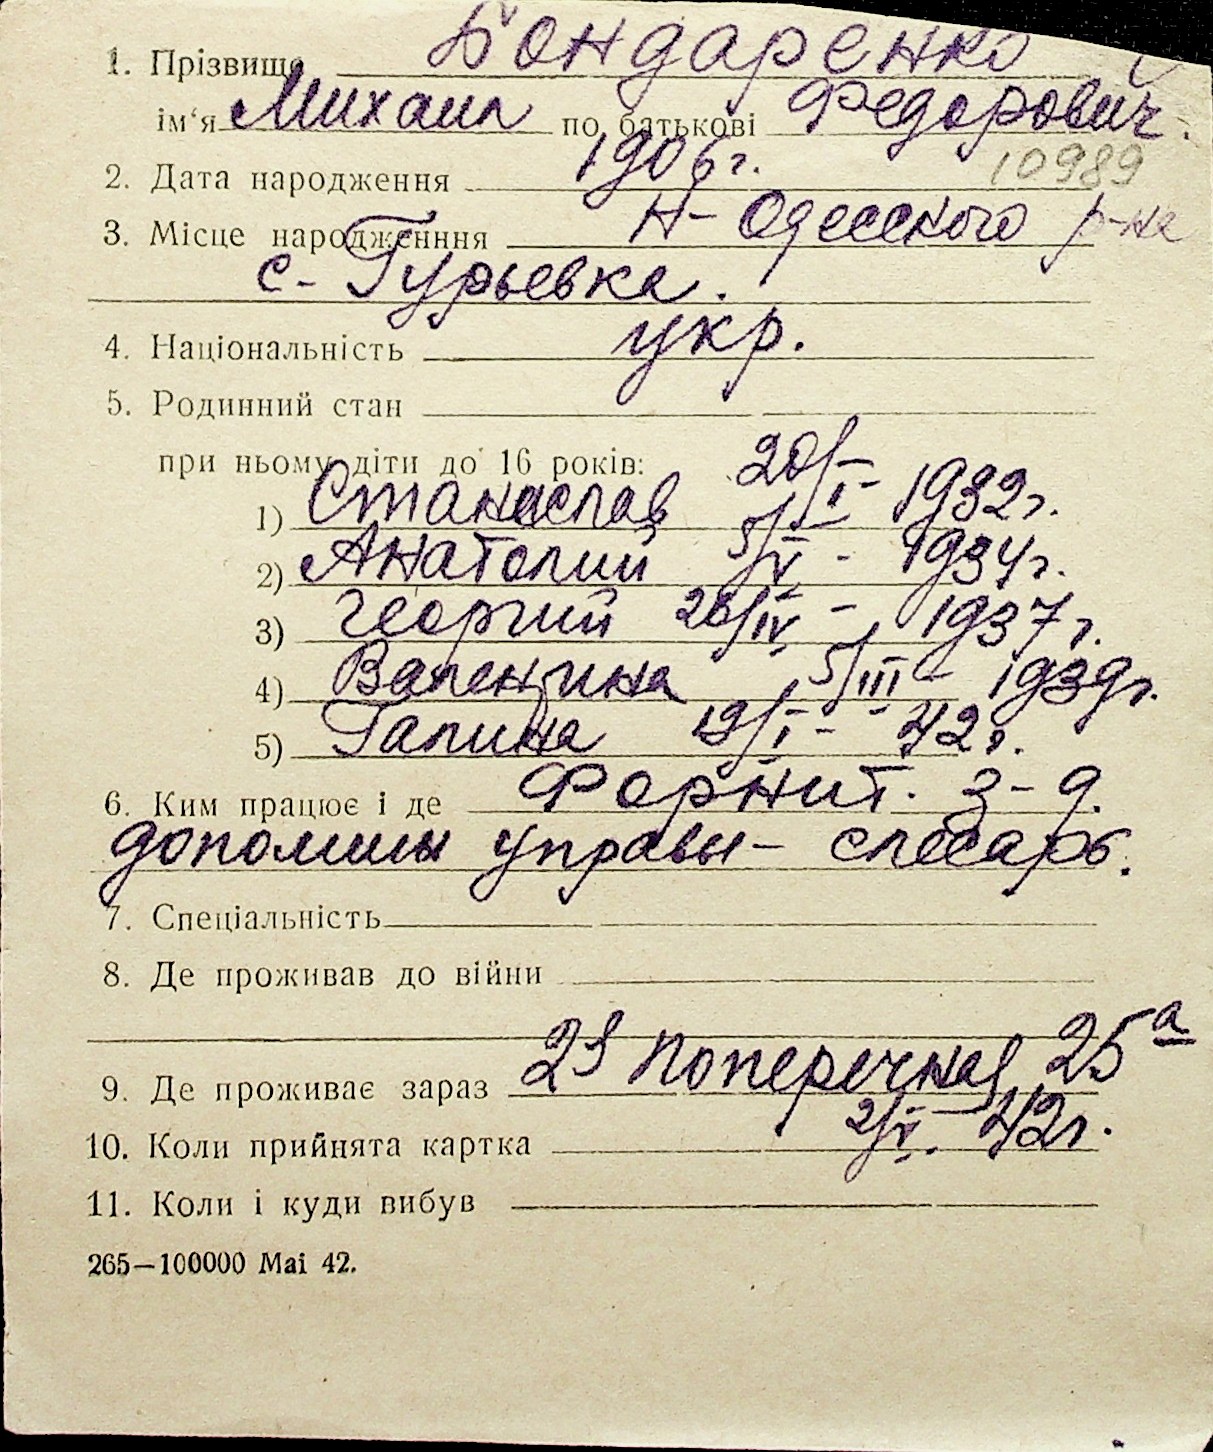 1. Прізвище Бондаренко
ім‘я Михаил по батькові Федорович.
2. Дата народження 1906 г. 10989
3. Місце народженння Н- Одесского р-на
с- Гурьевка.
4. Національність укр.
5. Родинний стан
при ньому діти до 16 років:
1) Станислав 20/I - 1932 г.
2) Анатолий 5/V - 1934 г.
3) Георгий 26/IV - 1937 г.
4) Валентина 5/III - 1939 г.
5) Галина 19/I - 42 г.
6. Ким працює і де з-д.
управы - слесарь.
7. Спеціальність
8. Де проживав до війни
9. Де проживає зараз 23 Поперечная 25а
10. Коли прийнята картка 2/V. 42 г.
11. Коли і куди вибув
265—100000 Mai 42.